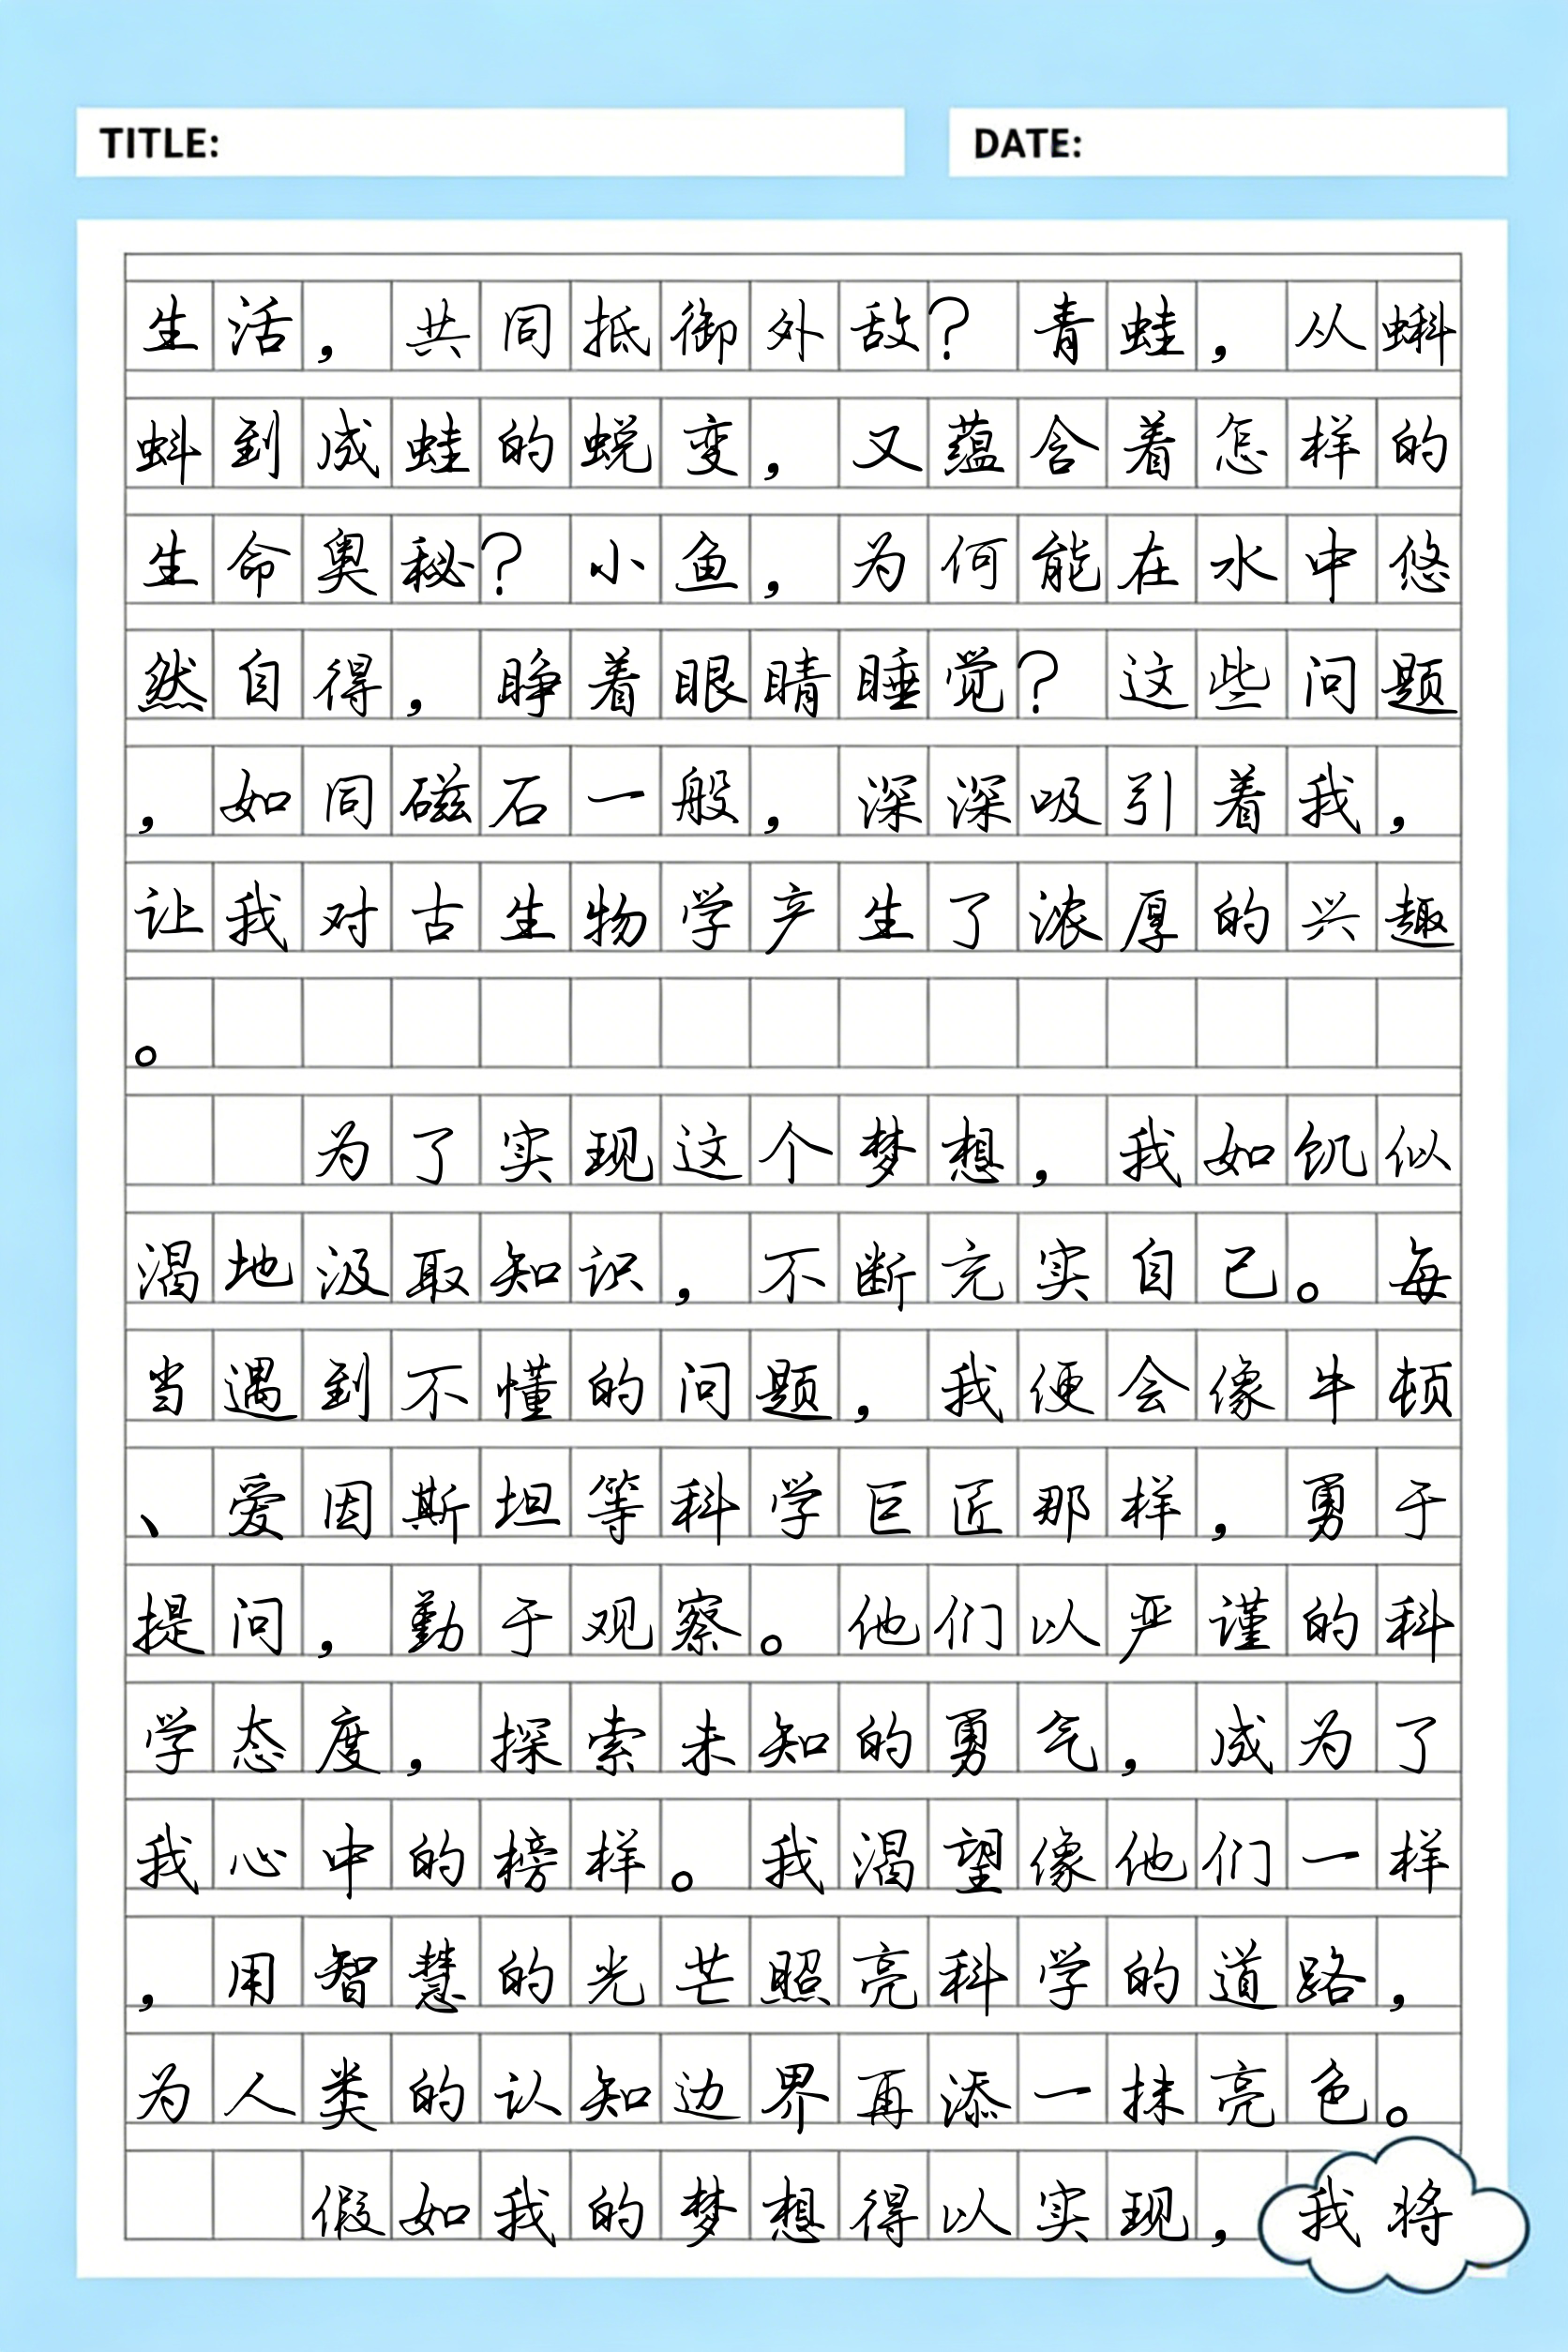 TITLE: DATE:
生活，共同抵御外敌？青蛙，从蝌
蚪到成蛙的蜕变，又蕴含着怎样的
生命奥秘？小鱼，为何能在水中悠
然自得，睁着眼睛睡觉？这些问题
，如同磁石一般，深深吸引着我，
让我对古生物学产生了浓厚的兴趣
。
为了实现这个梦想，我如饥似
渴地汲取知识，不断充实自己。每
当遇到不懂的问题，我便会像牛顿
、爱因斯坦等科学巨匠那样，勇于
提问，勤于观察。他们以严谨的科
学态度，探索未知的勇气，成为了
我心中的榜样。我渴望像他们一样
，用智慧的光芒照亮科学的道路，
为人类的认知边界再添一抹亮色。
假如我的梦想得以实现，我将